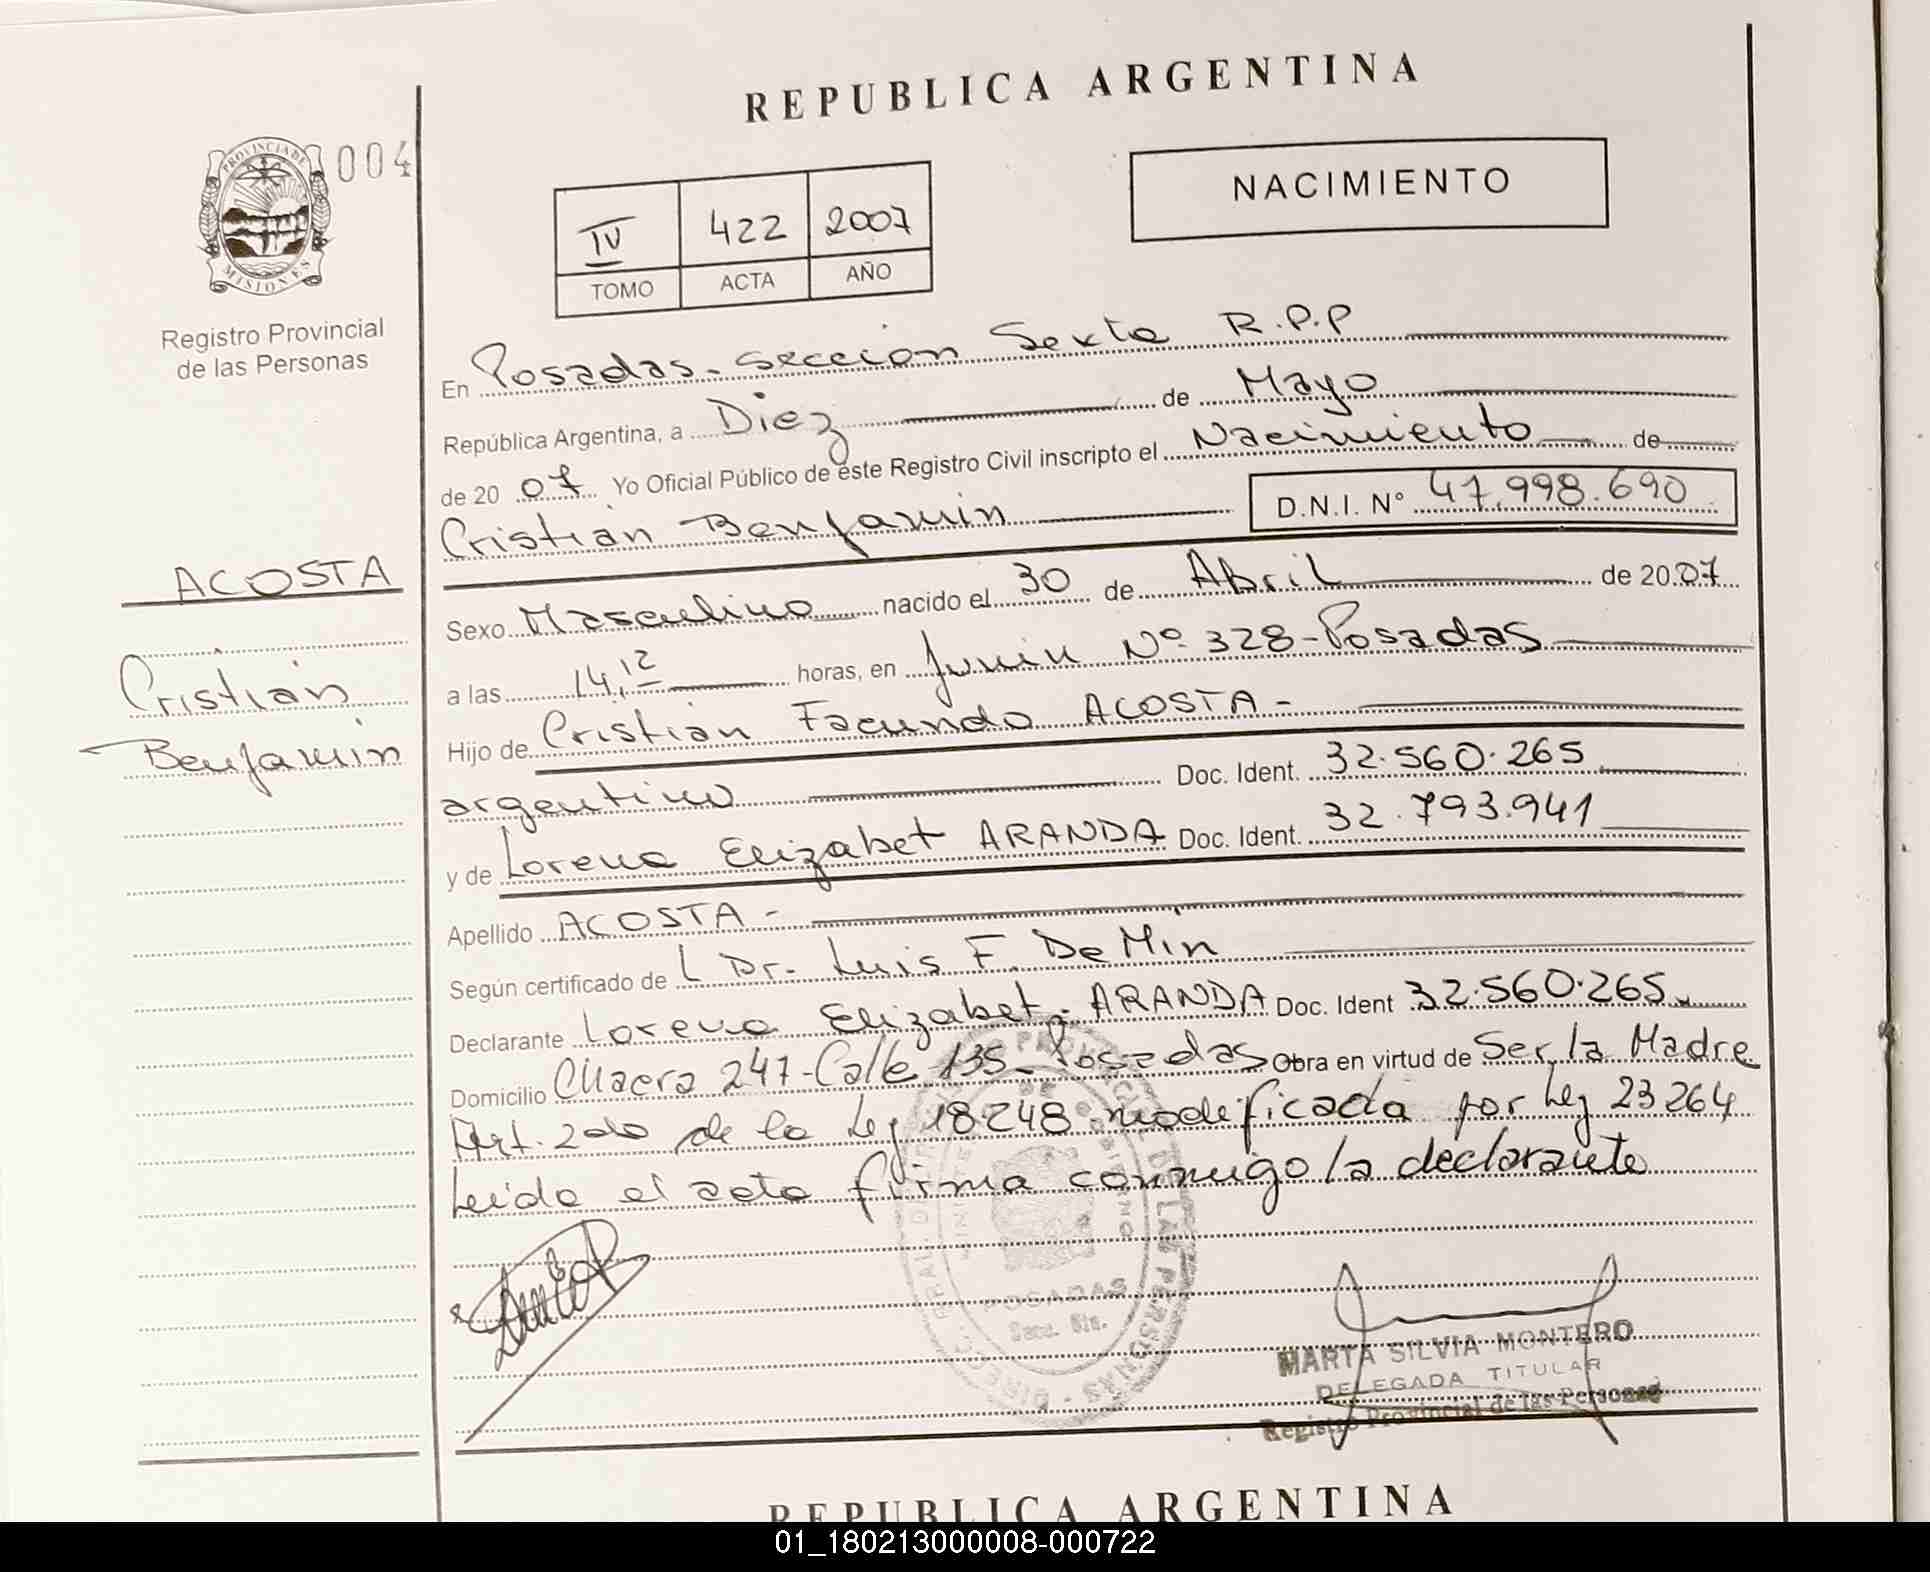 REPUBLICA ARGENTINA
PROVINCIA DE MISIONES
004
NACIMIENTO
IV 422 2007
TOMO ACTA AÑO
Registro Provincial
de las Personas
En Posadas - sección Sexta R.P.P
República Argentina, a Diez de Mayo
de 20 07 Yo Oficial Público de este Registro Civil inscripto el Nacimiento de
Cristian Benjamin D.N.I. N° 47.998.690
ACOSTA
Cristian
Benjamin
Sexo Masculino nacido el 30 de Abril de 20 07
a las 14,12 horas, en Junin Nº 328 - Posadas
Hijo de Cristian Facundo ACOSTA -
argentino Doc. Ident. 32.560.265
y de Lorena Elizabet ARANDA Doc. Ident. 32.793.941
Apellido ACOSTA -
Según certificado de Dr. Luis F. De Min
Declarante Lorena Elizabet - ARANDA Doc. Ident 32.560.265
Domicilio Chacra 247 - Calle 135 - Posadas Obra en virtud de Ser la Madre
Art. 2do de la Ley 18248 modificada por Ley 23264
Leida el acta firma conmigo la declarante
POSADAS
MARTA SILVIA MONTERO
DELEGADA TITULAR
Registro Provincial de las Personas
REPUBLICA ARGENTINA
01_180213000008-000722